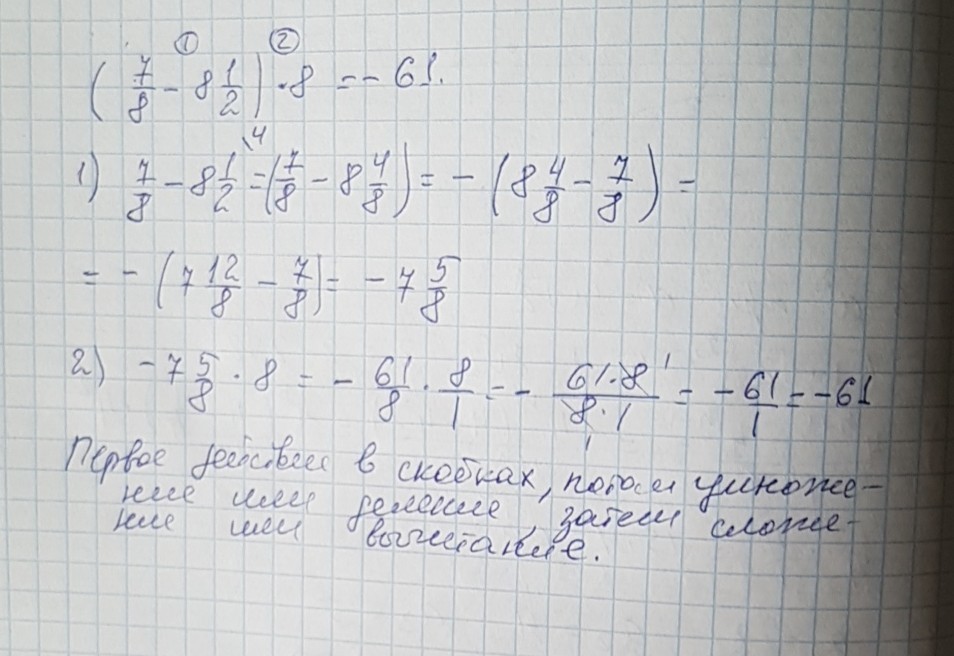 ① ②
(7/8 - 8 1/2) · 8 = - 61.
1) 7/8 - 8 1/2 \4 = (7/8 - 8 4/8) = - (8 4/8 - 7/8) =
= - (7 12/8 - 7/8) = - 7 5/8
2) - 7 5/8 · 8 = - 61/8 · 8/1 = - 61·8/8·1 = - 61/1 = - 61
Первое действие в скобках, потом умноже-
ние или деление, затем сложе-
ние или вычитание.